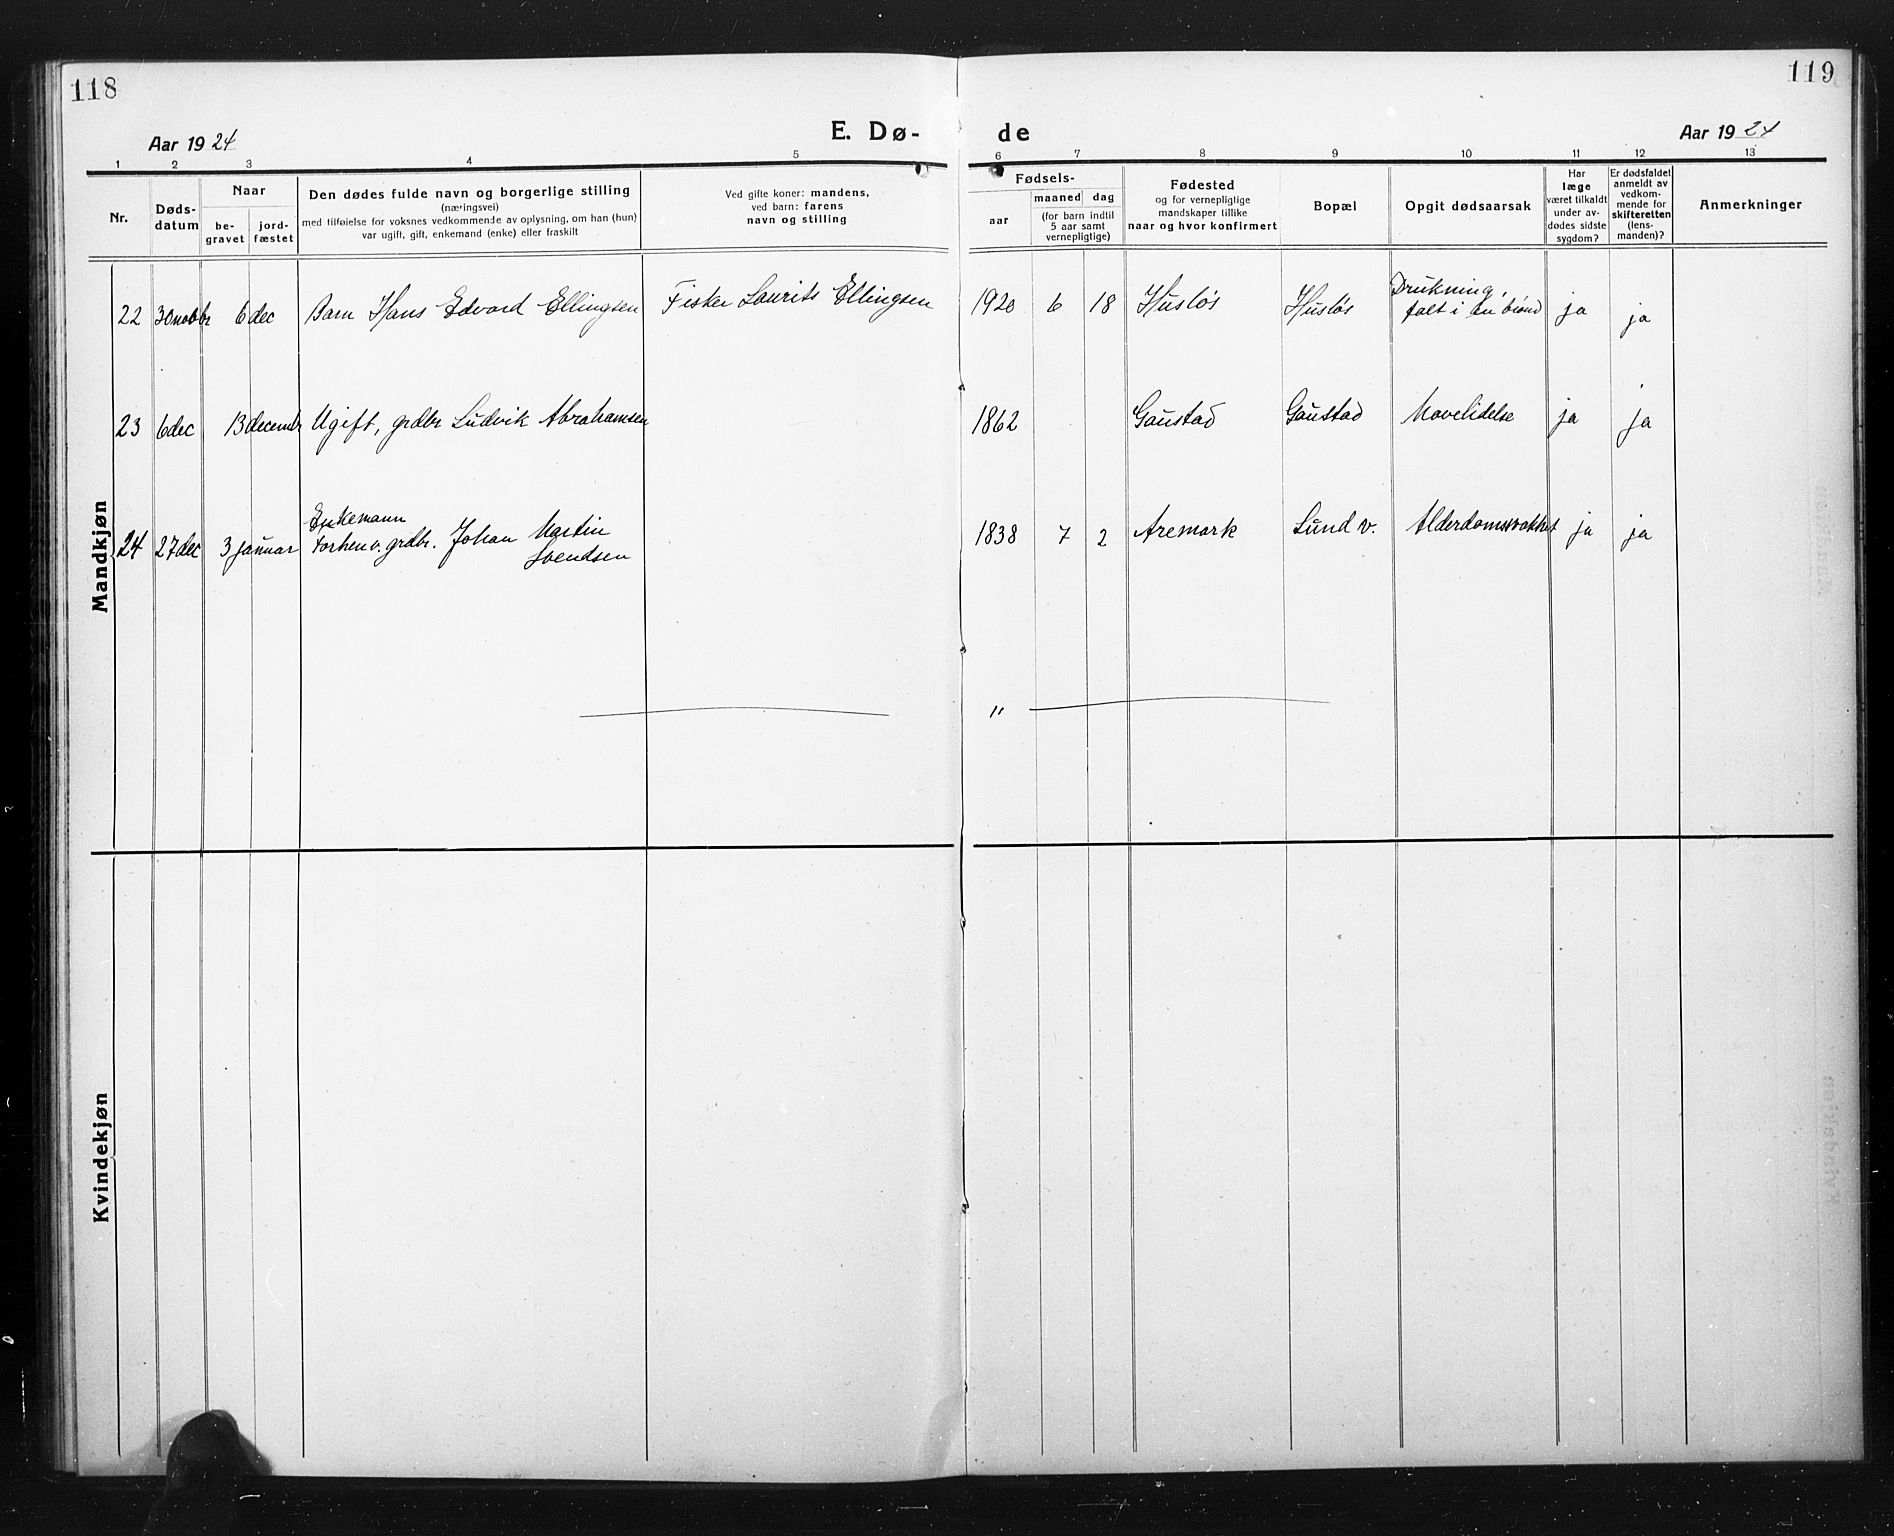 118
119
Aar 1924
E. Dø-
de
Aar 1924
1 2 3 4 5 6 7 8 9 10 11 12 13
Nr.
Døds-
datum
Naar
be-
gravet
jord-
fæstet
Den dødes fulde navn og borgerlige stilling
(næringsvei)
med tilføielse for voksnes vedkommende av oplysning, om han (hun)
var ugift, gift, enkemand (enke) eller fraskilt
Ved gifte koner: mandens,
ved barn: farens
navn og stilling
Fødsels-
aar
maaned dag
(for barn indtil
5 aar samt
vernepligtige)
Fødested
og for vernepligtige
mandskaper tillike
naar og hvor konfirmert
Bopæl
Opgit dødsaarsak
Har
læge
været tilkaldt
under av-
dødes sidste
sygdom?
Er dødsfaldet
anmeldt av
vedkom-
mende for
skifteretten
(lens-
manden)?
Anmerkninger
Mandkjøn
22 30 novbr 6 dec Barn Hans Edvard Ellingsen Fisker Laurits Ellingsen 1920 6 18 Husløs Husløs Drukning,
falt i en brønd ja ja
23 6 dec 13 decembr Ugift, grdbr Ludvik Abrahamsen 1862 Gaustad Gaustad Mavelidelse ja ja
24 27 dec 3 januar Enkemann
forhenv. grdbr. Johan Martin
Svendsen 1838 7 2 Aremark Lund v. Alderdomssvakhet ja ja
"
Kvindekjøn